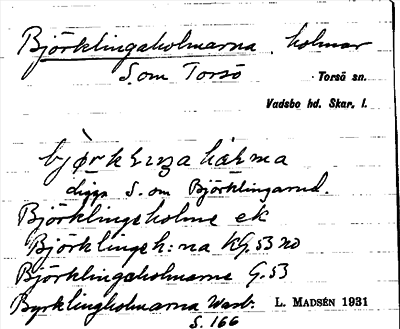 Björklingaholmarna. holmar
S. om Torsö
Torsö sn.
Vadsbo hd. Skar. l.
bjørklıŋahåɫma
ligga S. om Björklingarud.
Björklingsholme ek
Björklingsh:na KG.53 no
Björklingaholmarne G.53
Byrklingholmarna Westb.
S. 166
L. MADSÉN 1931